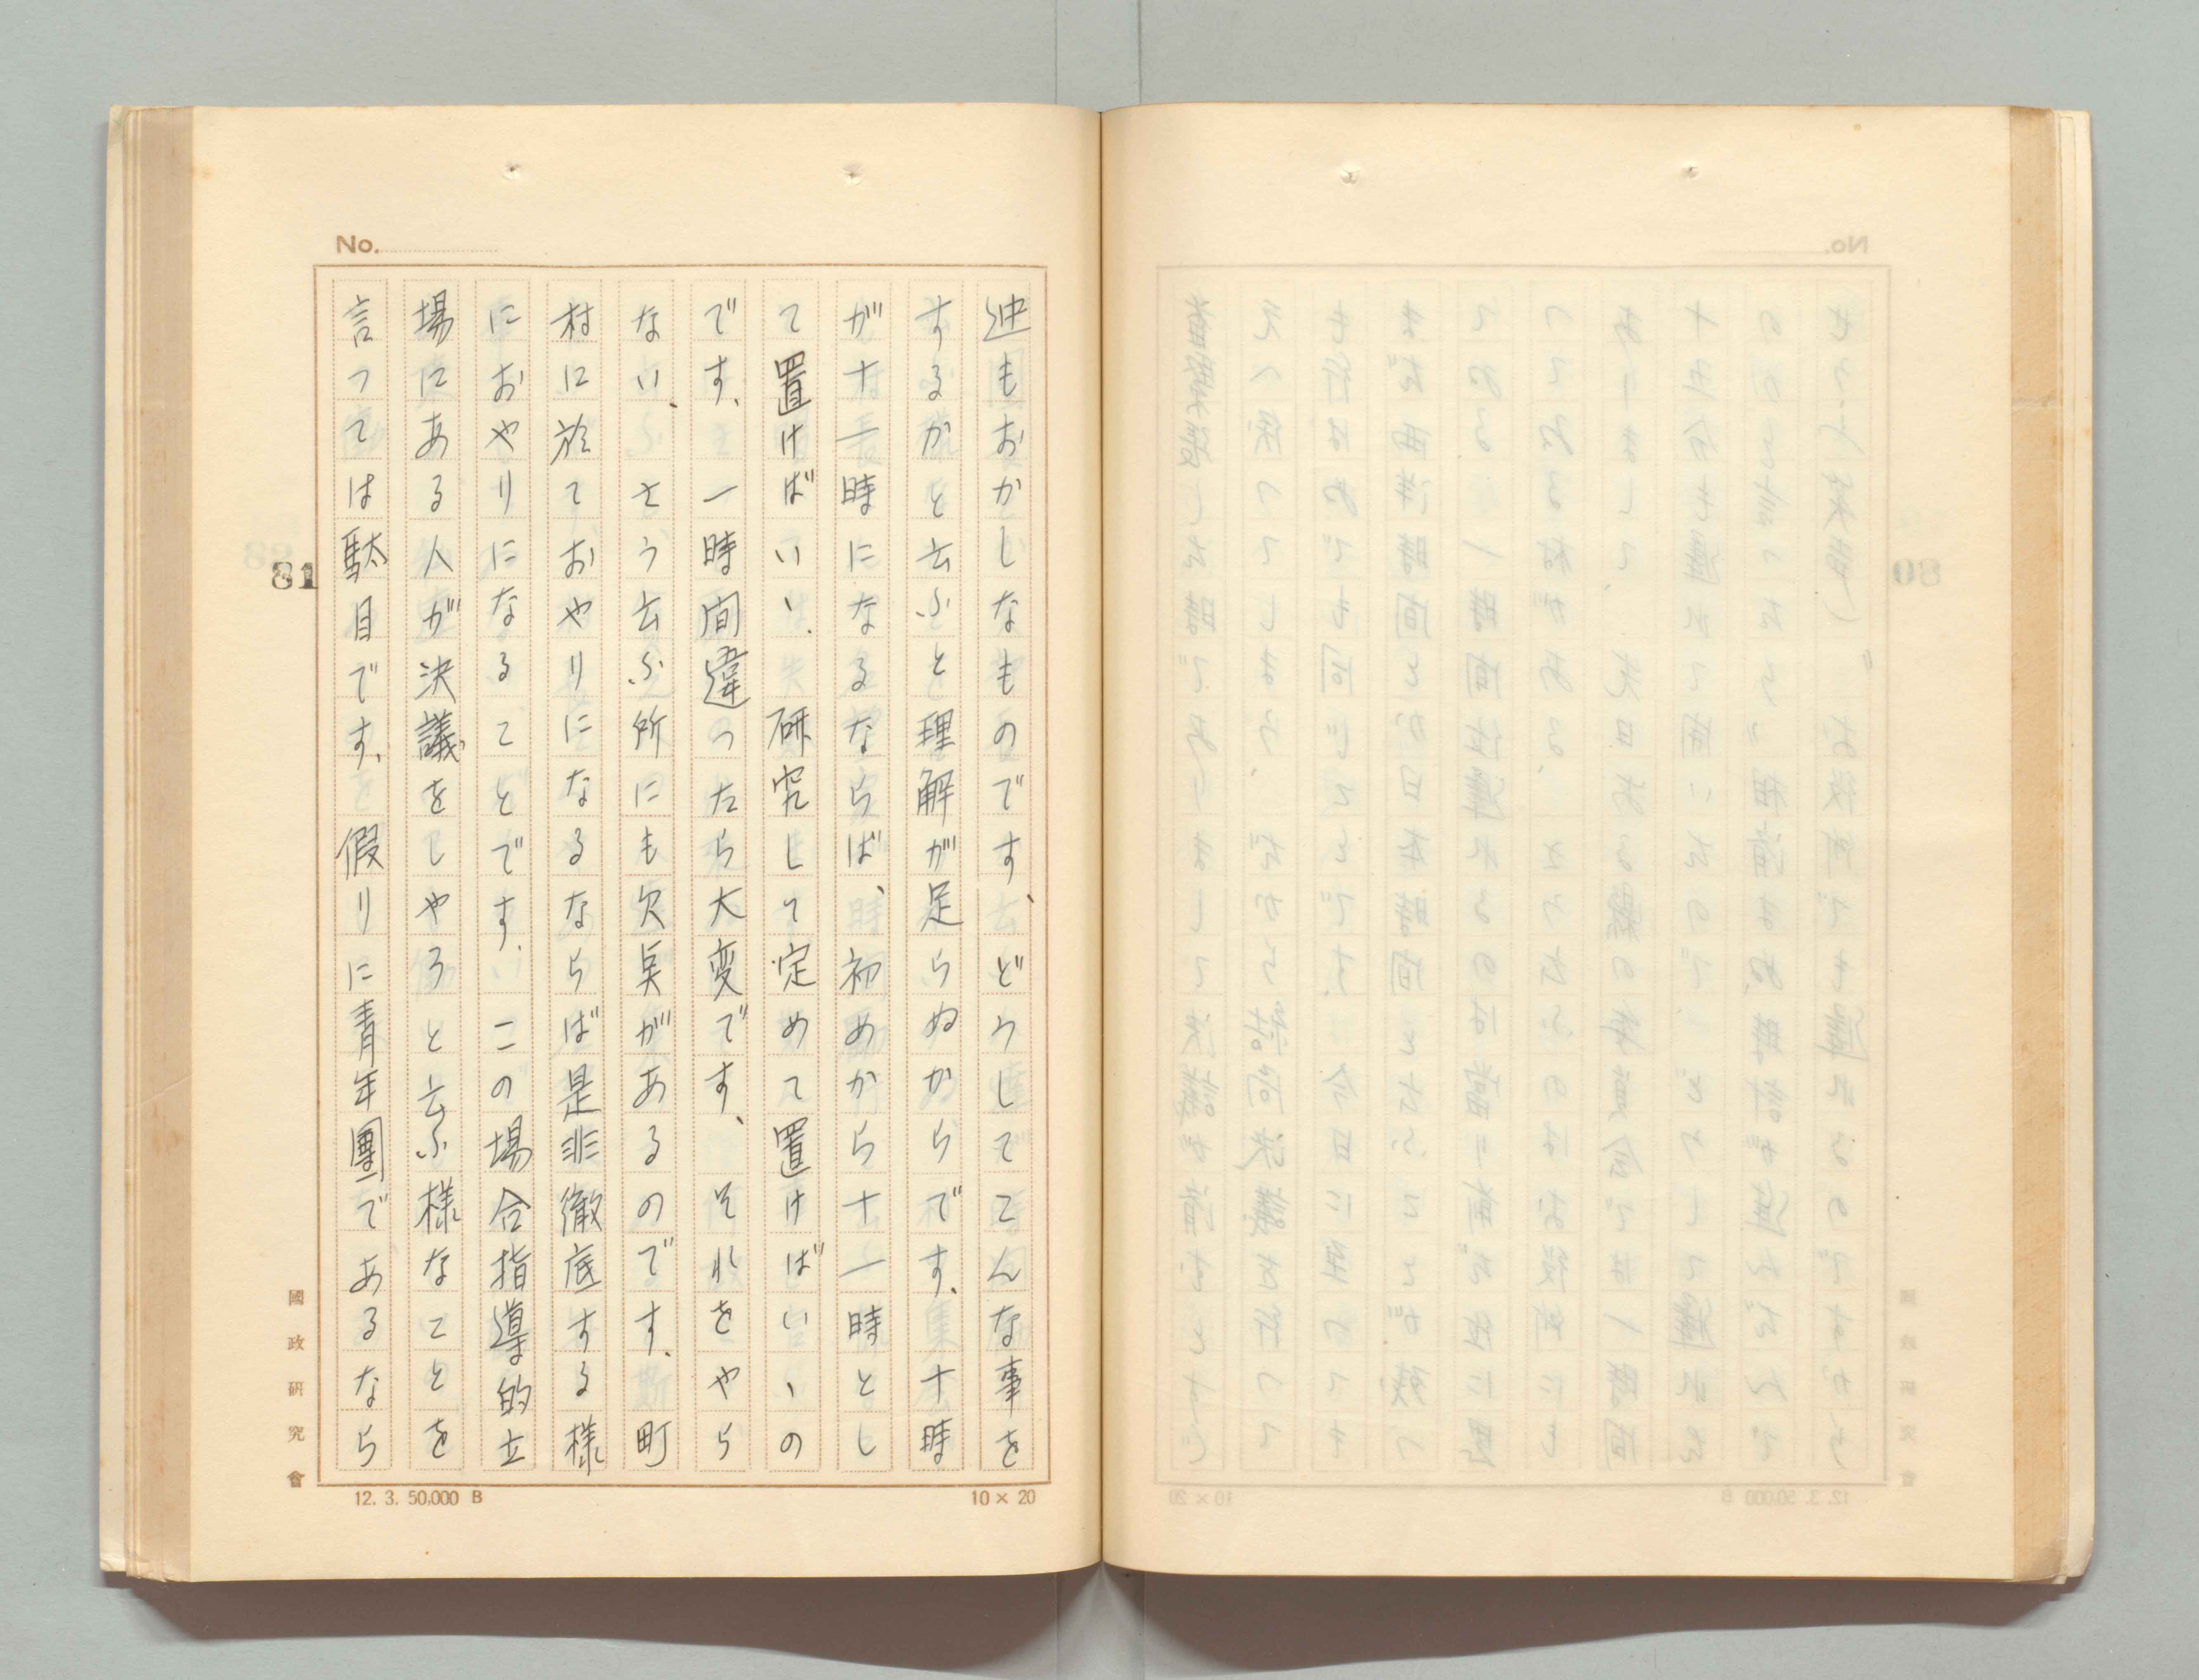 No.
迚もおかしなものです、どうしてこんな事を
するかと云ふと理解が足らぬからです、十時
が十一時になるならば、初めから十一時とし
て置けばいゝ、研究して定めて置けばいゝの
です、一時間違つたら大変です、それをやら
ない、さう云ふ所にも欠点があるのです、町
村に於ておやりになるならば是非徹底する様
におやりになることです、この場合指導的立
場にある人が決議をしやうと云ふ様なことを
言つては駄目です、假りに青年團であるなら
81
國政研究會
12. 3. 50,000 B
10 × 20